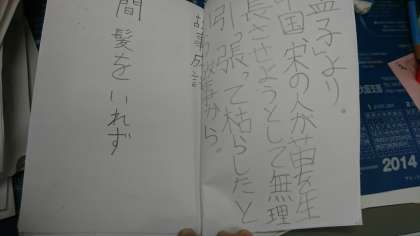 孟子より。
中国宋の人が苗を生
長させようとして無理
引っ張って枯らしたと
故事から。
故事成語
間髪をいれず
2014